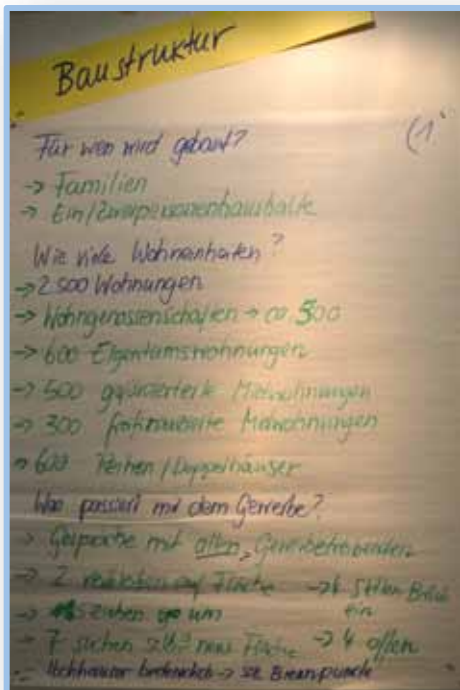 Baustruktur
Für wen wird gebaut? (1.
-> Familien
-> Ein/Zweipersonenhaushalte
Wie viele Wohneinheiten?
-> 2500 Wohnungen
-> Wohngenossenschaften -> ca. 500
-> 600 Eigentumswohnungen
-> 500 Mietwohnungen
-> 300 Mietwohnungen
-> 600 Reihen/Doppelhäuser
Was passiert mit dem Gewerbe?
-> Gespräche mit allen Gewerbetreibenden
-> 2 auf Fläche -> stellen
ein
-> ziehen um
-> 7 suchen neue Fläche -> 4 offen
Hochhäuser -> soz. Brennpunkte